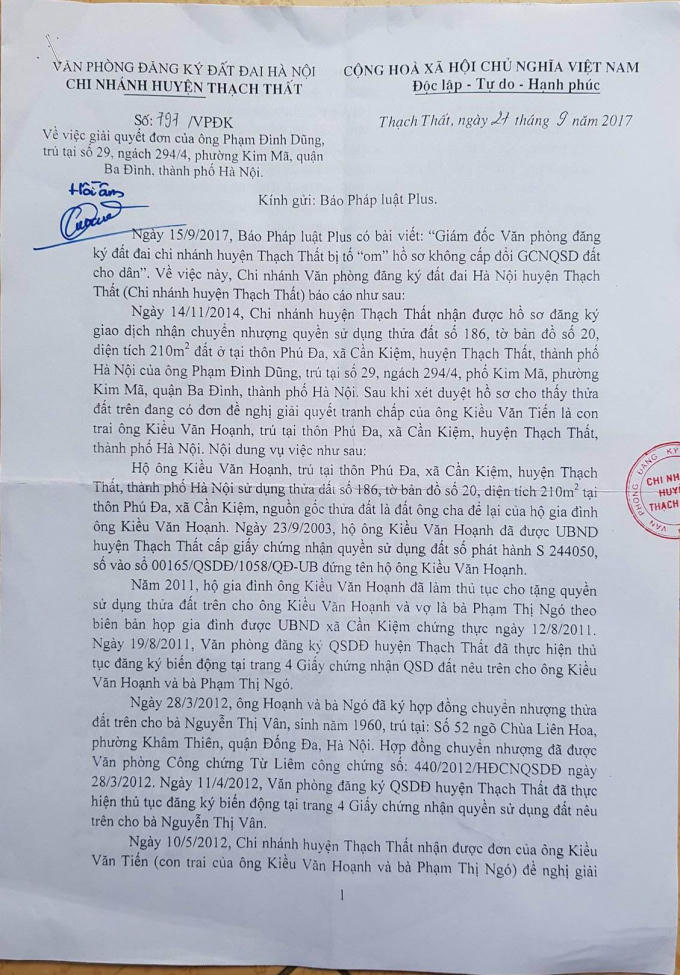 VĂN PHÒNG ĐĂNG KÝ ĐẤT ĐAI HÀ NỘI
CHI NHÁNH HUYỆN THẠCH THẤT
CỘNG HOÀ XÃ HỘI CHỦ NGHĨA VIỆT NAM
Độc lập - Tự do - Hạnh phúc
Số: 797 /VPĐK
Thạch Thất, ngày 21 tháng 9 năm 2017
Về việc giải quyết đơn của ông Phạm Đình Dũng,
trú tại số 29, ngách 294/4, phường Kim Mã, quận
Ba Đình, thành phố Hà Nội.
Hồi âm
Kính gửi: Báo Pháp luật Plus.
Ngày 15/9/2017, Báo Pháp luật Plus có bài viết: “Giám đốc Văn phòng đăng
ký đất đai chi nhánh huyện Thạch Thất bị tố “om” hồ sơ không cấp đổi GCNQSD đất
cho dân”. Về việc này, Chi nhánh Văn phòng đăng ký đất đai Hà Nội huyện Thạch
Thất (Chi nhánh huyện Thạch Thất) báo cáo như sau:
Ngày 14/11/2014, Chi nhánh huyện Thạch Thất nhận được hồ sơ đăng ký
giao dịch nhận chuyển nhượng quyền sử dụng thửa đất số 186, tờ bản đồ số 20,
diện tích 210m² đất ở tại thôn Phú Đa, xã Cần Kiệm, huyện Thạch Thất, thành phố
Hà Nội của ông Phạm Đình Dũng, trú tại số 29, ngách 294/4, phố Kim Mã, phường
Kim Mã, quận Ba Đình, thành phố Hà Nội. Sau khi xét duyệt hồ sơ cho thấy thửa
đất trên đang có đơn đề nghị giải quyết tranh chấp của ông Kiều Văn Tiến là con
trai ông Kiều Văn Hoạnh, trú tại thôn Phú Đa, xã Cần Kiệm, huyện Thạch Thất,
thành phố Hà Nội. Nội dung vụ việc như sau:
Hộ ông Kiều Văn Hoạnh, trú tại thôn Phú Đa, xã Cần Kiệm, huyện Thạch
Thất, thành phố Hà Nội sử dụng thửa đất số 186, tờ bản đồ số 20, diện tích 210m² tại
thôn Phú Đa, xã Cần Kiệm, nguồn gốc thửa đất là đất ông cha để lại của hộ gia đình
ông Kiều Văn Hoạnh. Ngày 23/9/2003, hộ ông Kiều Văn Hoạnh đã được UBND
huyện Thạch Thất cấp giấy chứng nhận quyền sử dụng đất số phát hành S 244050,
số vào sổ 00165/QSDĐ/1058/QĐ-UB đứng tên hộ ông Kiều Văn Hoạnh.
VĂN PHÒNG ĐĂNG KÝ
CHI NH
HUYỆ
THẠCH
Năm 2011, hộ gia đình ông Kiều Văn Hoạnh đã làm thủ tục cho tặng quyền
sử dụng thửa đất trên cho ông Kiều Văn Hoạnh và vợ là bà Phạm Thị Ngó theo
biên bản họp gia đình được UBND xã Cần Kiệm chứng thực ngày 12/8/2011.
Ngày 19/8/2011, Văn phòng đăng ký QSDĐ huyện Thạch Thất đã thực hiện thủ
tục đăng ký biến động tại trang 4 Giấy chứng nhận QSD đất nêu trên cho ông Kiều
Văn Hoạnh và bà Phạm Thị Ngó.
Ngày 28/3/2012, ông Hoạnh và bà Ngó đã ký hợp đồng chuyển nhượng thửa
đất trên cho bà Nguyễn Thị Vân, sinh năm 1960, trú tại: Số 52 ngõ Chùa Liên Hoa,
phường Khâm Thiên, quận Đống Đa, Hà Nội. Hợp đồng chuyển nhượng đã được
Văn phòng Công chứng Từ Liêm công chứng số: 440/2012/HĐCNQSDĐ ngày
28/3/2012. Ngày 11/4/2012, Văn phòng đăng ký QSDĐ huyện Thạch Thất đã thực
hiện thủ tục đăng ký biến động tại trang 4 Giấy chứng nhận quyền sử dụng đất nêu
trên cho bà Nguyễn Thị Vân.
Ngày 10/5/2012, Chi nhánh huyện Thạch Thất nhận được đơn của ông Kiều
Văn Tiến (con trai của ông Kiều Văn Hoạnh và bà Phạm Thị Ngó) đề nghị giải
1